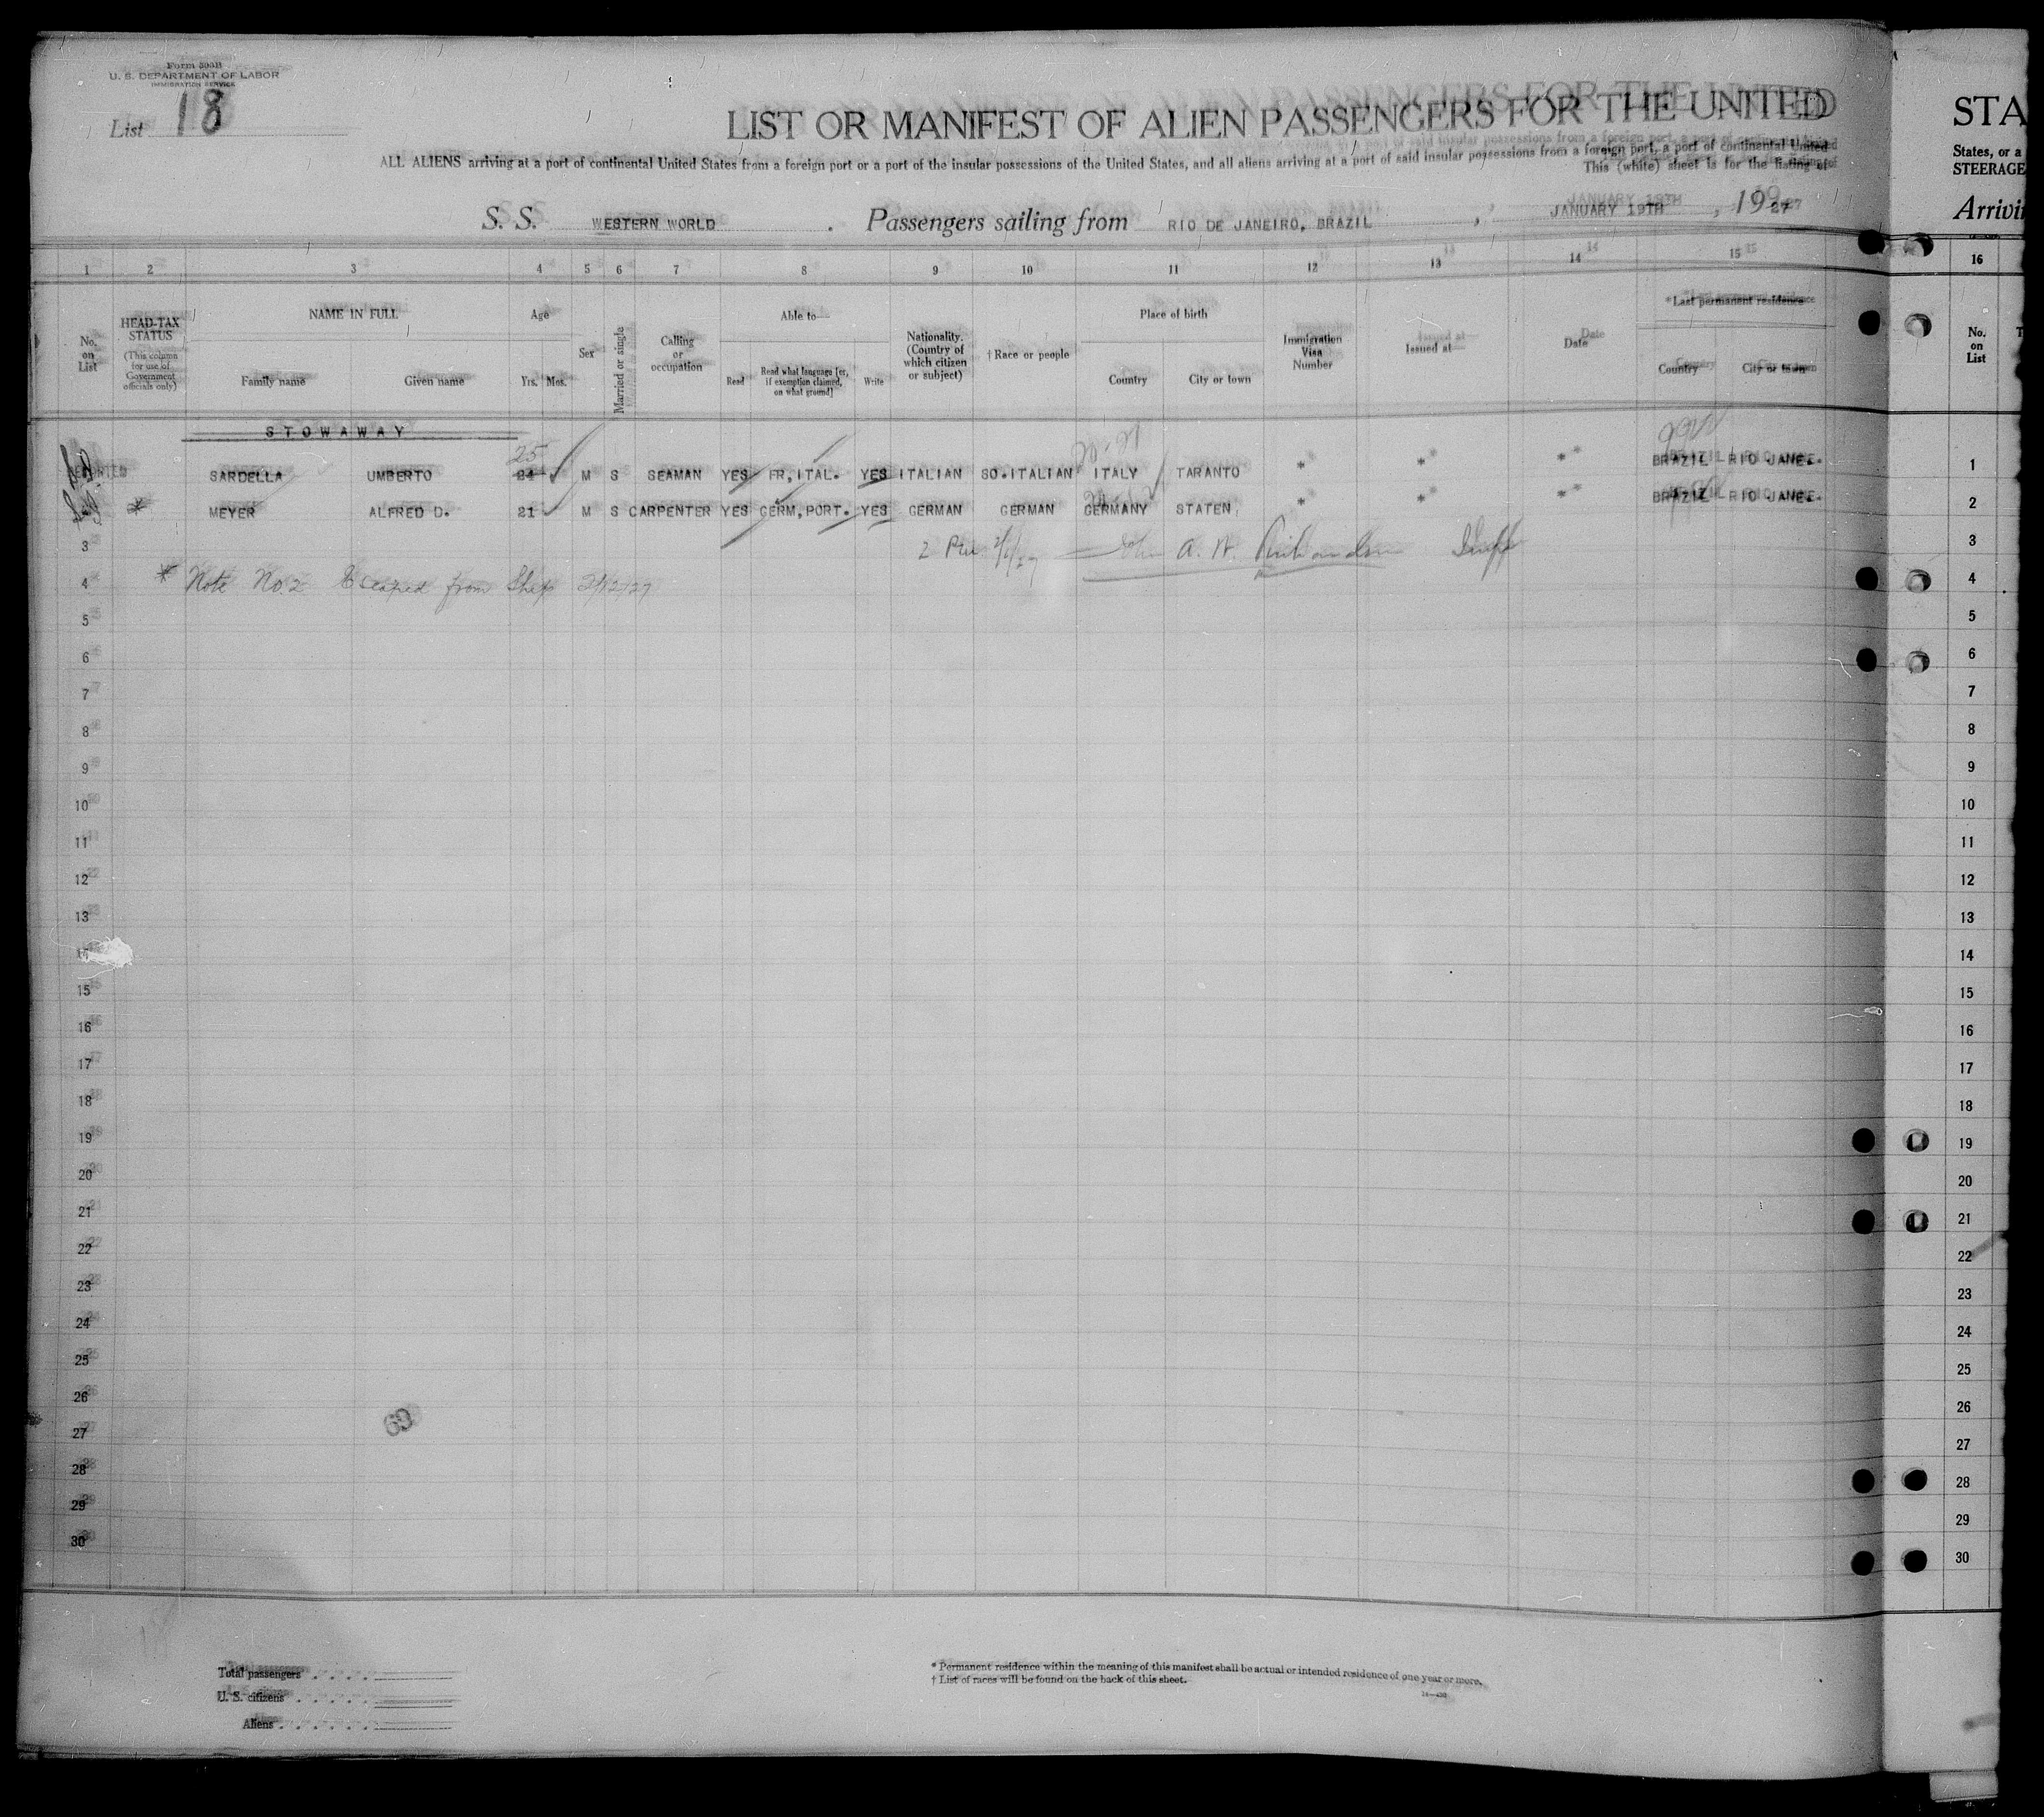 Form 500B
U. S. DEPARTMENT OF LABOR
IMMIGRATION SERVICE
List 18
LIST OR MANIFEST OF ALIEN PASSENGERS FOR THE UNITED
STA
ALL ALIENS arriving at a port of continental United States from a foreign port or a port of the insular possessions of the United States, and all aliens arriving at a port of said insular possessions from a foreign port, a port of continental United
States, or a
This (white) sheet is for the listing of
STEERAGE
S. S. WESTERN WORLD . Passengers sailing from RIO DE JANEIRO, BRAZIL , JANUARY 19TH , 1927
Arrivi
1 2 3 4 5 6 7 8 9 10 11 12 13 14 15 16
No. on List
HEAD-TAX STATUS (This column for use of Government officials only)
NAME IN FULL
Family name Given name
Age
Yrs. Mos.
Sex
Married or single
Calling or occupation
Able to—
Read Read what language [or, if exemption claimed, on what ground] Write
Nationality. (Country of which citizen or subject)
† Race or people
Place of birth
Country City or town
Immigration Visa Number
Issued at
Date
* Last permanent residence
Country City or town
No. on List
STOWAWAY
25
1 SARDELLA UMBERTO 24 M S SEAMAN YES FR, ITAL. YES ITALIAN SO.ITALIAN ITALY TARANTO * * * BRAZIL RIO JANE. 1
2 * MEYER ALFRED D. 21 M S CARPENTER YES GERM, PORT. YES GERMAN GERMAN GERMANY STATEN * * * BRAZIL RIO JANE. 2
3 A. W. Richardson 3
4 * Note No. 2 Escaped from Ship 2/12/27 4
5 5
6 6
7 7
8 8
9 9
10 10
11 11
12 12
13 13
14 14
15 15
16 16
17 17
18 18
19 19
20 20
21 21
22 22
23 23
24 24
25 25
26 26
27 27
28 28
29 29
30 30
69
Total passengers
U. S. citizens
Aliens
* Permanent residence within the meaning of this manifest shall be actual or intended residence of one year or more.
† List of races will be found on the back of this sheet.